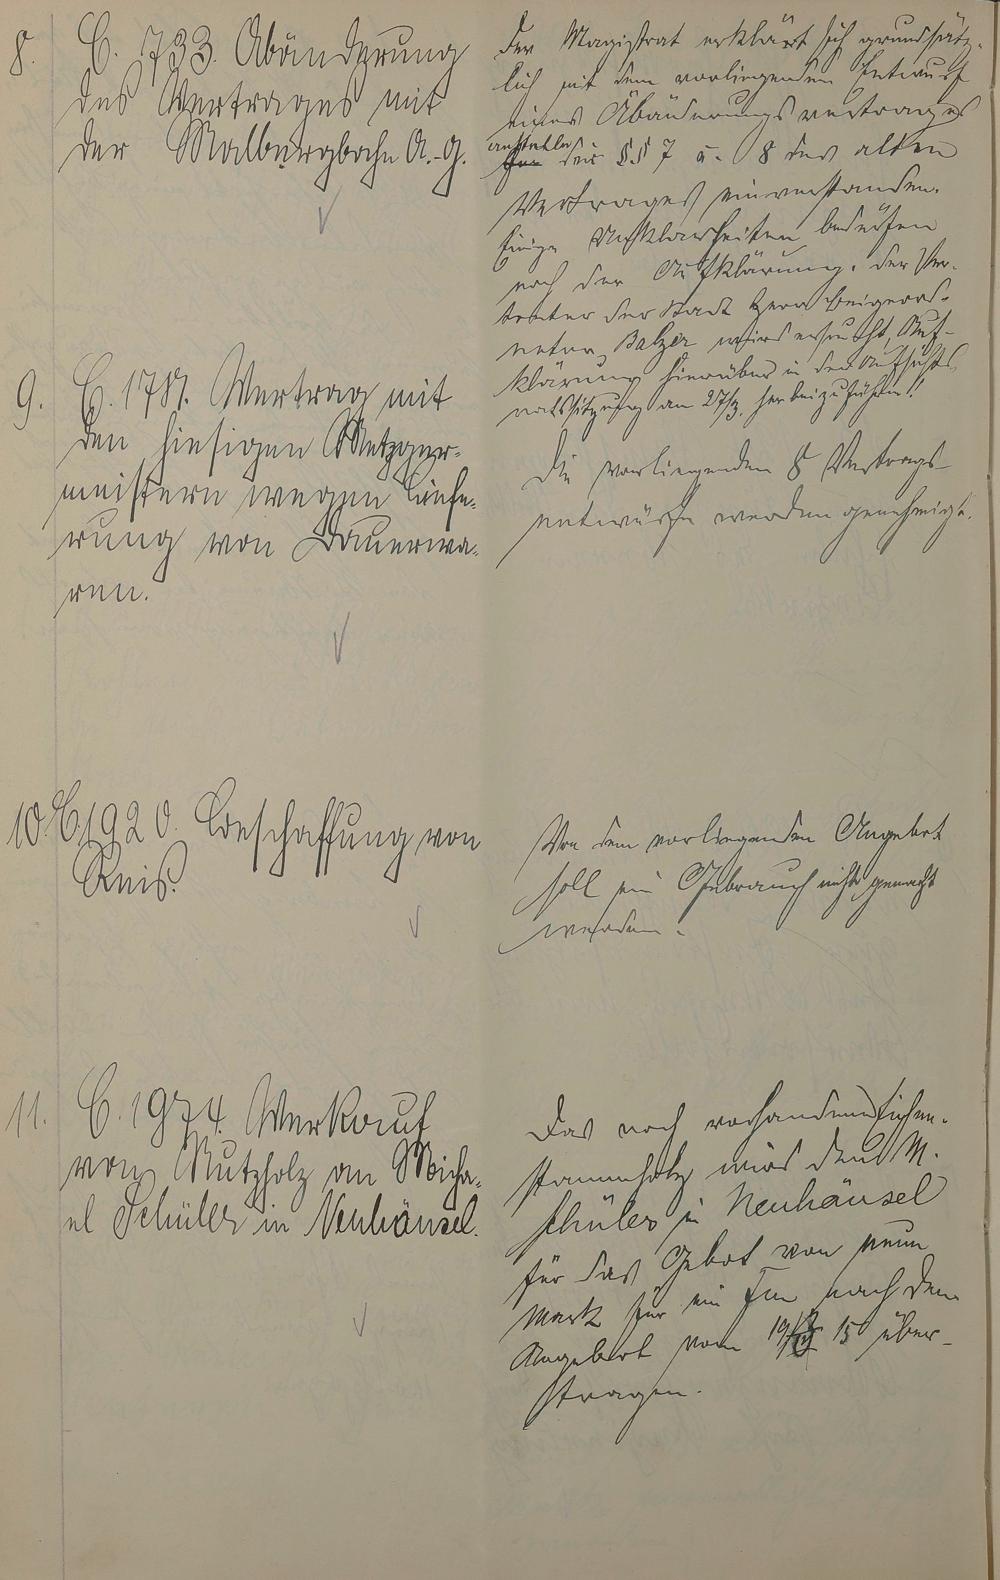 8. C. 733. Abänderung
des Vertrages mit
der Malbergbahn A.-G.
Der Magistrat erklärt sich grundsätz-
lich mit dem vorliegenden Entwurf
eines Abänderungsvertrages
anstelle
für der §§ 7 u. 8 des alten
Vertrages einverstanden.
Einige Unklarheiten bedürfen
noch der Aufklärung. Der Ver-
treter der Stadt Herr Beigeord-
neter Balzer wird ersucht, Auf-
klärung hierüber in der Aufsichts-
ratssitzung am 27/3. herbeizuführen!
9. C. 1787. Vertrag mit
den hiesigen Metzger-
meistern wegen Liefe-
rung von Dauerwa-
ren.
Die vorliegenden 8 Vertrags-
entwürfe werden genehmigt.
10. C. 1920. Beschaffung von
Reis.
Von dem vorliegenden Angebot
soll ein Gebrauch nicht gemacht
werden.
11. C. 1974. Verkauf
von Nutzholz an Micha-
el Schüler in Neuhäusel.
Das noch vorhandene Eichen-
stammholz wird dem M.
Schüler in Neuhäusel
für das Gebot von neun
Mark für ein Fm nach dem
Angebot vom 19/3 15 über-
tragen.